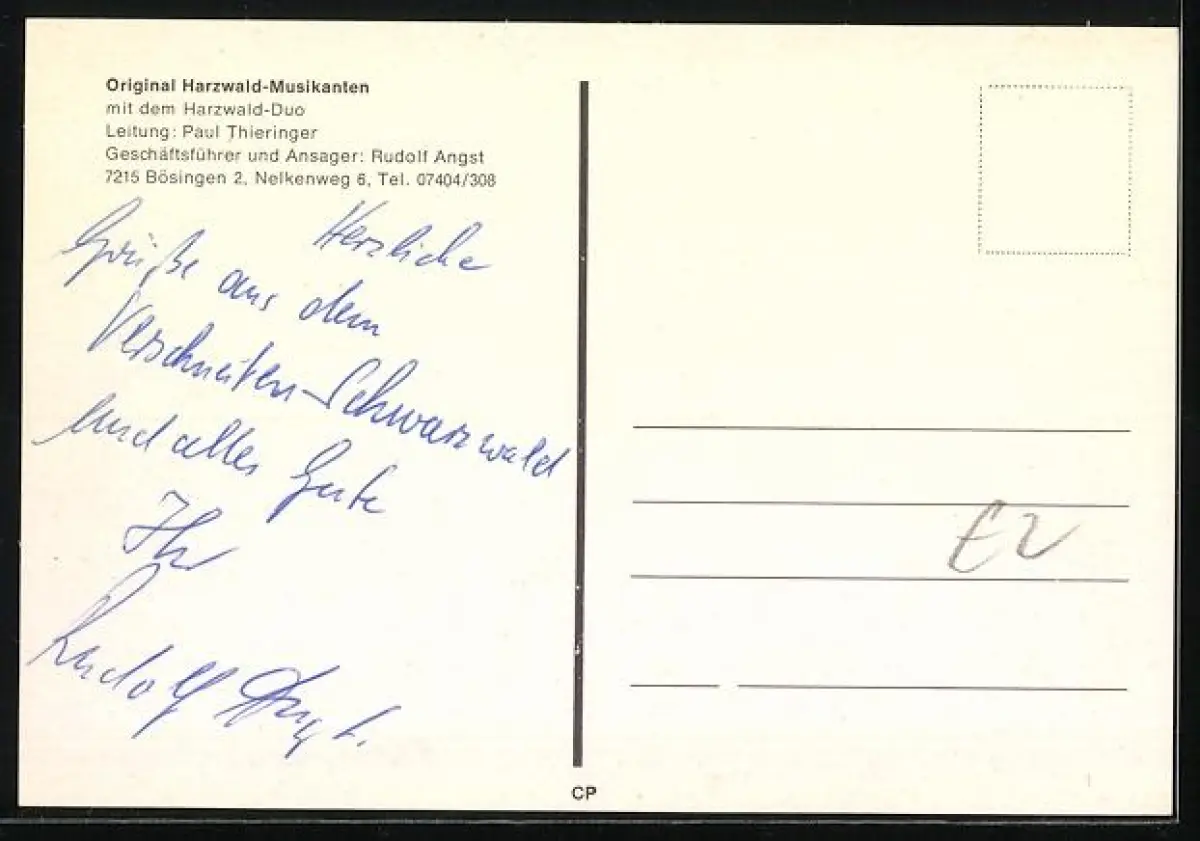 Original Harzwald-Musikanten
mit dem Harzwald-Duo
Leitung: Paul Thieringer
Geschäftsführer und Ansager: Rudolf Angst
7215 Bösingen 2, Nelkenweg 6, Tel. 07404/308
Herzliche
Grüße aus dem
Verschneiten-Schwarzwald
und alles Gute
Ihr
Rudolf Angst.
CP